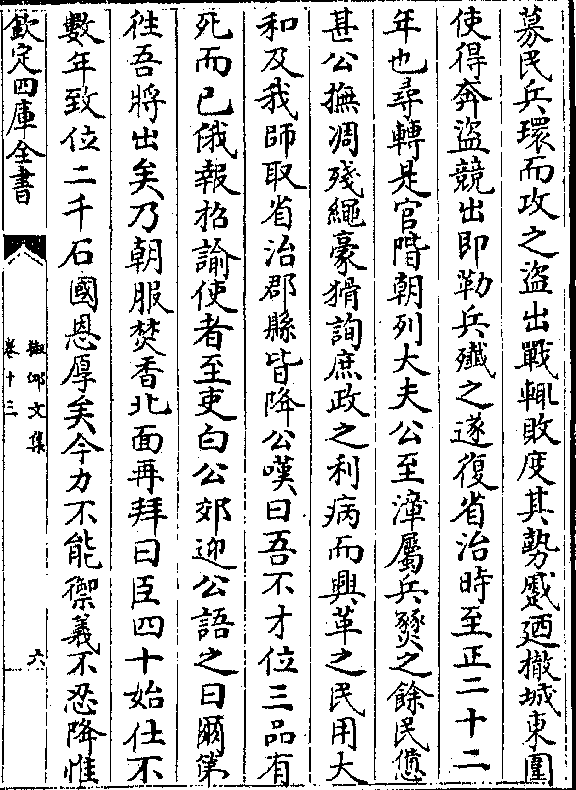 募民兵環而攻之盜出戰輒敗度其勢蹙廼撤城東圍
使得奔盜競出即勒兵殲之遂復省治時至正二十二
年也尋轉是官階朝列大夫公至漳屬兵燹之餘民憊
甚公撫凋殘繩豪猾詢庶政之利病而興革之民用大
和及我師取省治郡縣皆降公嘆曰吾不才位三品有
死而已俄報招諭使者至吏白公郊迎公語之曰爾第
往吾將出矣乃朝服焚香北面再拜曰臣四十始仕不
數年致位二千石國恩厚矣今力不能禦義不忍降惟
欽定四庫全書
椒邱文集
卷十三
六